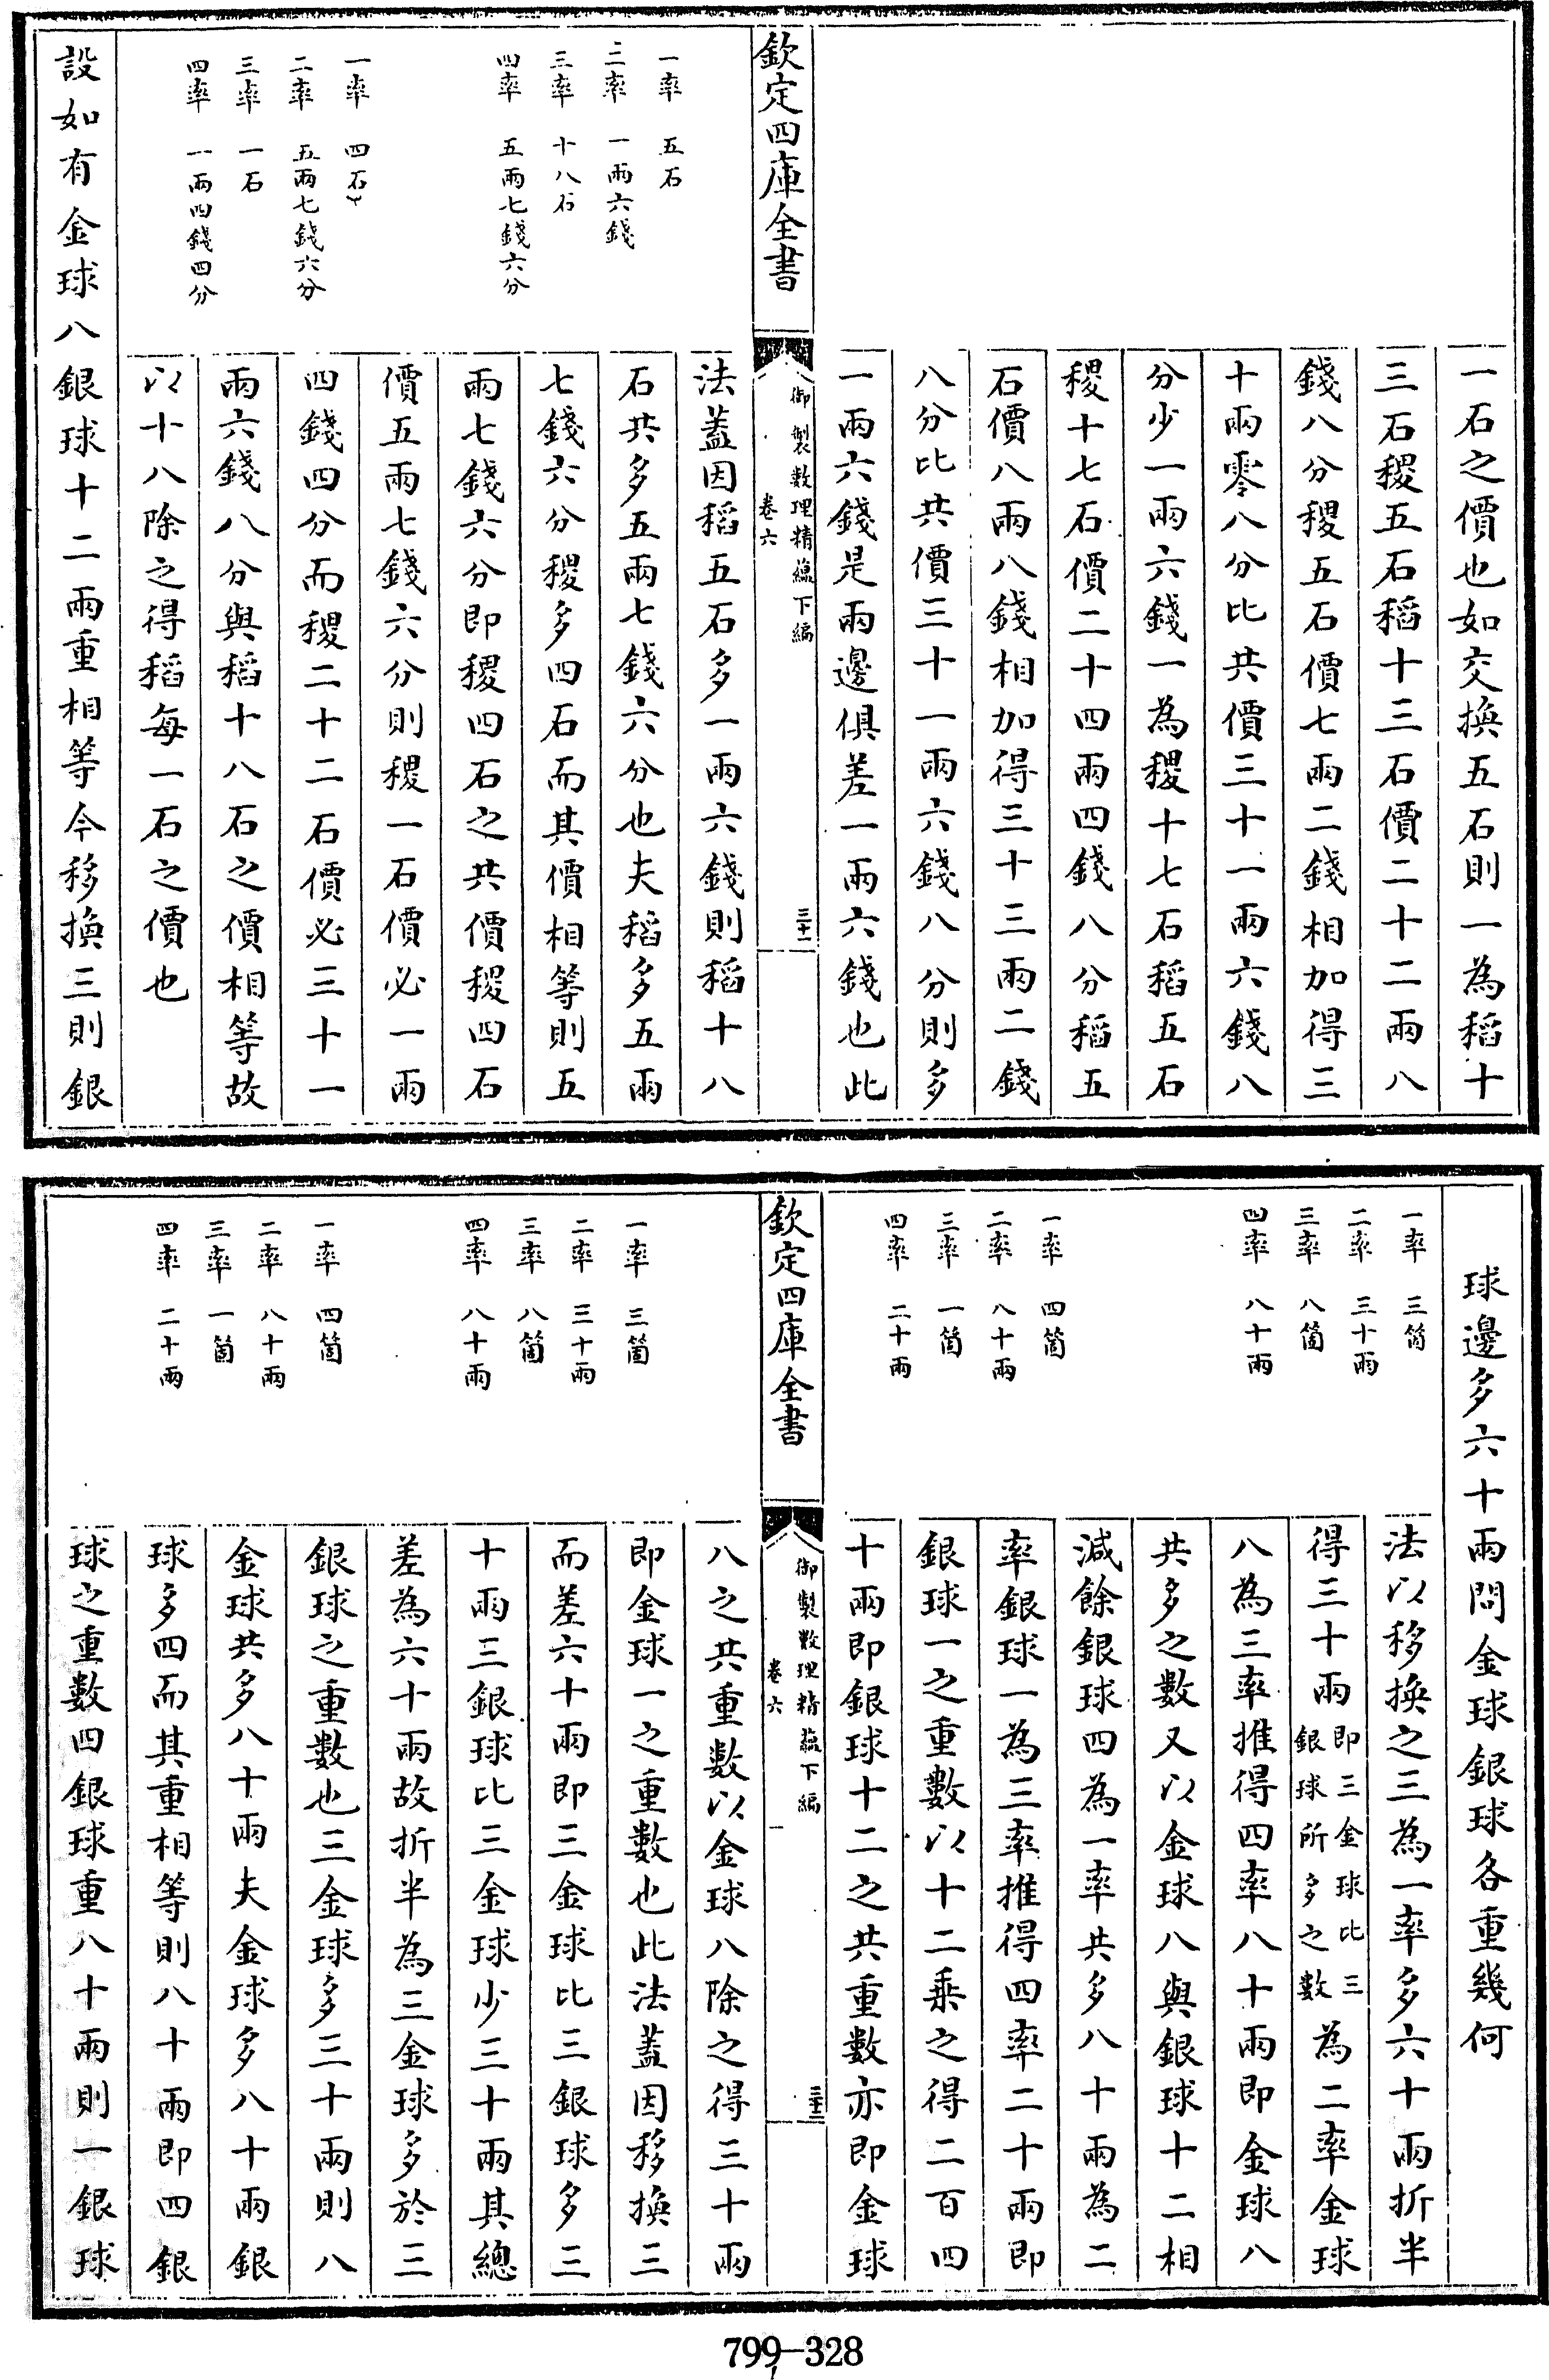 一石之價也如交換五石則一為稻十
三石稷五石稻十三石價二十二兩八
錢八分稷五石價七兩二錢相加得三
十兩零八分比共價三十一兩六錢八
分少一兩六錢一為稷十七石稻五石
稷十七石價二十四兩四錢八分稻五
石價八兩八錢相加得三十三兩二錢
八分比共價三十一兩六錢八分則多
一兩六錢是兩邊俱差一兩六錢也此
欽定四庫全書
御製數理精蘊下編
卷六
三十一
一率 五石
二率 一兩六錢
三率 十八石
四率 五兩七錢六分
一率 四石
二率 五兩七錢六分
三率 一石
四率 一兩四錢四分
法蓋因稻五石多一兩六錢則稻十八
石共多五兩七錢六分也夫稻多五兩
七錢六分稷多四石而其價相等則五
兩七錢六分即稷四石之共價稷四石
價五兩七錢六分則稷一石價必一兩
四錢四分而稷二十二石價必三十一
兩六錢八分與稻十八石之價相等故
以十八除之得稻每一石之價也
設如有金球八銀球十二兩重相等今移換三則銀
球邊多六十兩問金球銀球各重幾何
一率 三箇
二率 三十兩
三率 八箇
四率 八十兩
一率 四箇
二率 八十兩
三率 一箇
四率 二十兩
法以移換之三為一率多六十兩折半
得三十兩即三金球比三銀球所多之數為二率金球
八為三率推得四率八十兩即金球八
共多之數又以金球八與銀球十二相
減餘銀球四為一率共多八十兩為二
率銀球一為三率推得四率二十兩即
銀球一之重數以十二乘之得二百四
十兩即銀球十二之共重數亦即金球
欽定四庫全書
御製數理精蘊下編
卷六
三十二
一率 三箇
二率 三十兩
三率 八箇
四率 八十兩
一率 四箇
二率 八十兩
三率 一箇
四率 二十兩
八之共重數以金球八除之得三十兩
即金球一之重數也此法蓋因移換三
而差六十兩即三金球比三銀球多三
十兩三銀球比三金球少三十兩其總
差為六十兩故折半為三金球多於三
銀球之重數也三金球多三十兩則八
金球共多八十兩夫金球多八十兩銀
球多四而其重相等則八十兩即四銀
球之重數四銀球重八十兩則一銀球
799-328